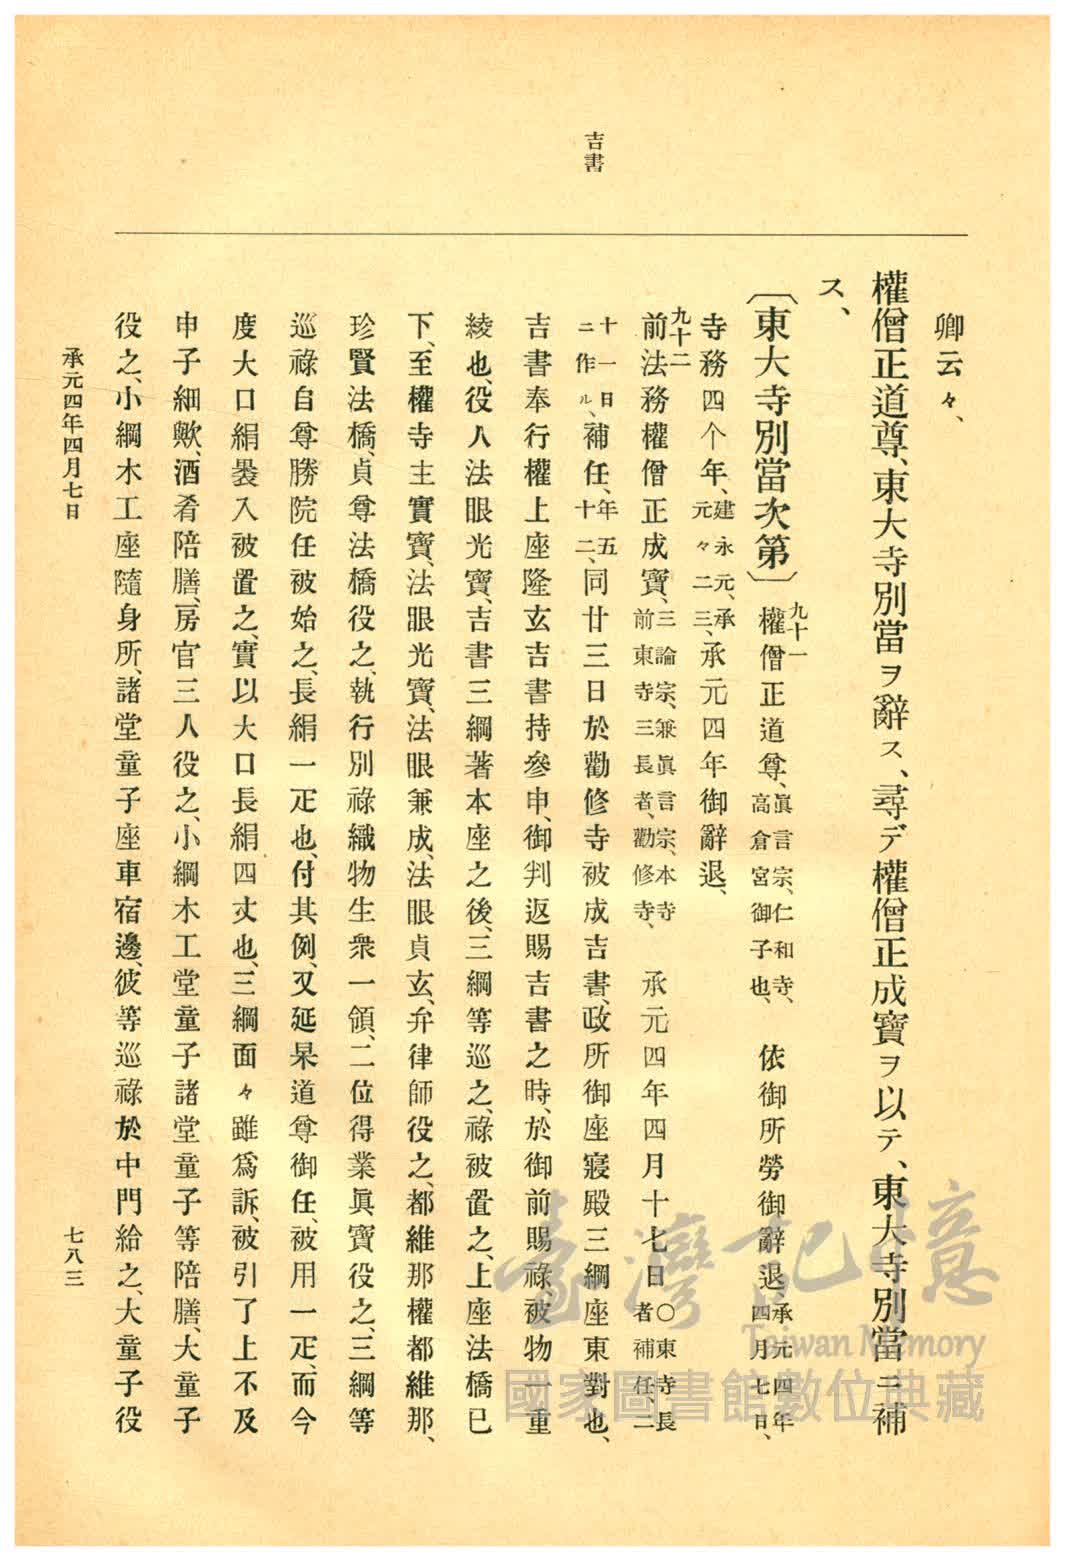 吉書
卿云々、
權僧正道尊、東大寺別當ヲ辭ス、尋デ權僧正成寶ヲ以テ、東大寺別當ニ補
ス、
〔東大寺別當次第〕九十一權僧正道尊、眞言宗、仁和寺、高倉宮御子也、依御所勞御辭退承元四年四月七日、
寺務四个年、建永元、承元々二三、承元四年御辭退、
九十二前法務權僧正成寶、三論宗、兼眞言宗、本寺前東寺三長者、勸修寺、承元四年四月十七日〇東寺長者補任、二
十一日ニ作ル、補任、年五十二、同廿三日於勸修寺被成吉書、政所御座寢殿三綱座東對也、
吉書奉行權上座隆玄吉書持參申、御判返賜吉書之時、於御前賜祿、被物一重
綾也、役人法眼光寶、吉書三綱著本座之後、三綱等巡之、祿被置之、上座法橋已
下、至權寺主實寶、法眼光寶、法眼兼成、法眼貞玄、弁律師役之、都維那權都維那、
珍賢法橋、貞尊法橋役之、執行別祿織物生衆一領、二位得業眞寶役之、三綱等
巡祿自尊勝院任被始之、長絹一疋也、付其例、又延杲道尊御任、被用一疋、而今
度大口絹裝入被置之、實以大口長絹四丈也、三綱面々雖爲訴、被引了上不及
申子細歟、酒肴陪膳、房官三人役之、小綱木工堂童子諸堂童子等陪膳、大童子
役之、小綱木工座隨身所、諸堂童子座車宿邊、彼等巡祿於中門給之、大童子役
承元四年四月七日
七八三
臺灣記憶
Taiwan Memory
國家圖書館數位典藏